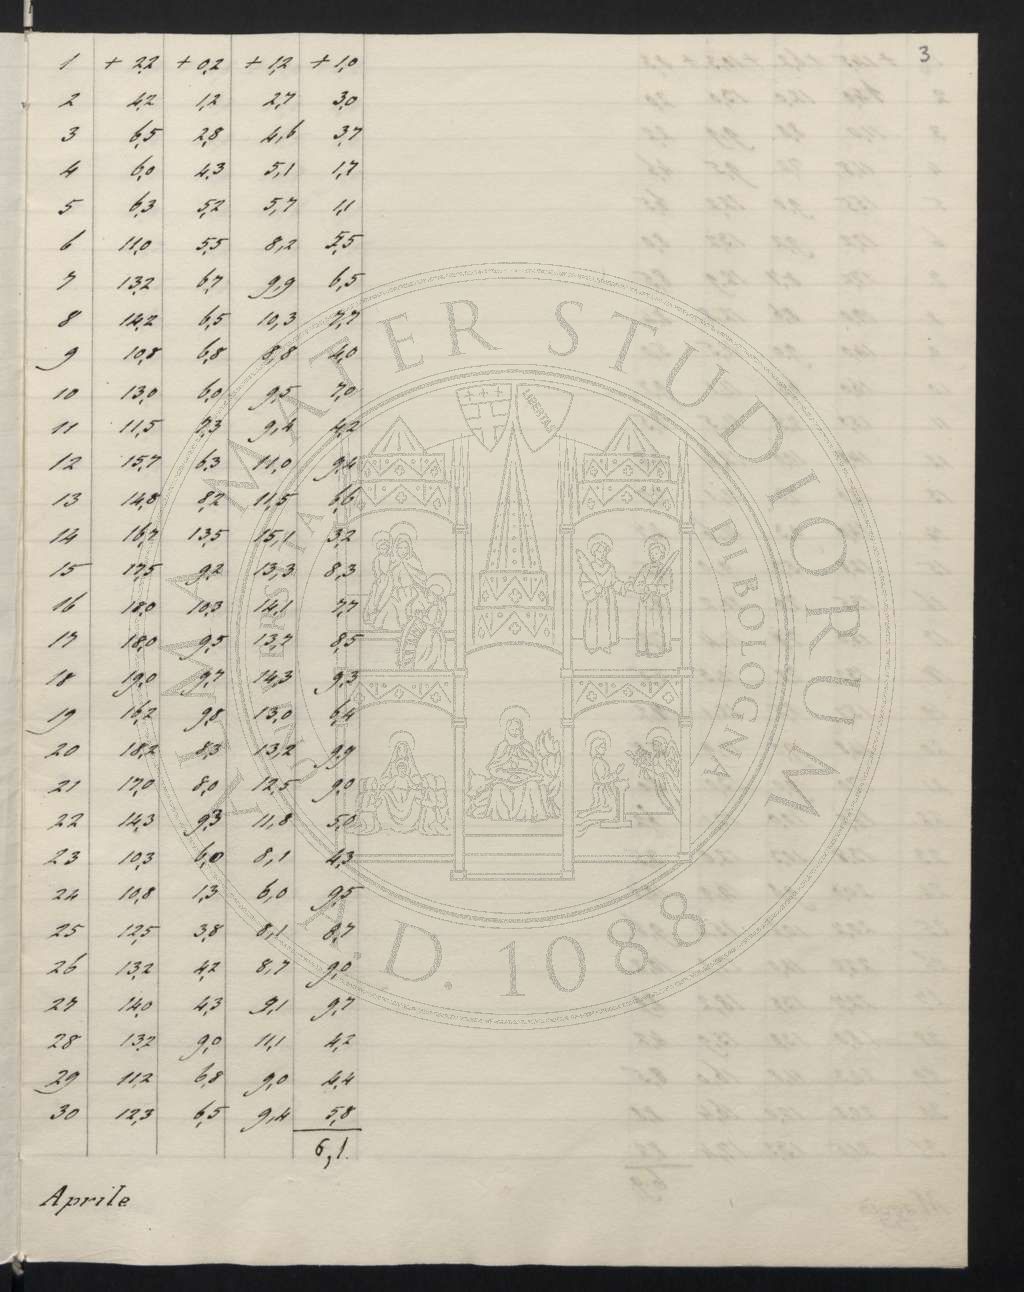 3
1 + 2,2 + 0,2 + 1,2 + 1,0
2 4,2 1,2 2,7 3,0
3 6,5 2,8 4,6 3,7
4 6,0 4,3 5,1 1,7
5 6,3 5,2 5,7 1,1
6 11,0 5,5 8,2 5,5
7 13,2 6,7 9,9 6,5
8 14,2 6,5 10,3 7,7
9 10,8 6,8 8,8 4,0
10 13,0 6,0 9,5 7,0
11 11,5 7,3 9,4 4,2
12 15,7 6,3 11,0 9,4
13 14,8 8,2 11,5 6,6
14 16,7 13,5 15,1 3,2
15 17,5 9,2 13,3 8,3
16 18,0 10,3 14,1 7,7
17 18,0 9,5 13,7 8,5
18 19,0 9,7 14,3 9,3
19 16,2 9,8 13,0 6,4
20 18,2 8,3 13,2 9,9
21 17,0 8,0 12,5 9,0
22 14,3 9,3 11,8 5,0
23 10,3 6,0 8,1 4,3
24 10,8 1,3 6,0 9,5
25 12,5 3,8 8,1 8,7
26 13,2 4,2 8,7 9,0
27 14,0 4,3 9,1 9,7
28 13,2 9,0 11,1 4,2
29 11,2 6,8 9,0 4,4
30 12,3 6,5 9,4 5,8
6,1
Aprile
ALMA MATER STUDIORUM
A.D. 1088
UNIVERSITÀ DI BOLOGNA
LIBERTAS